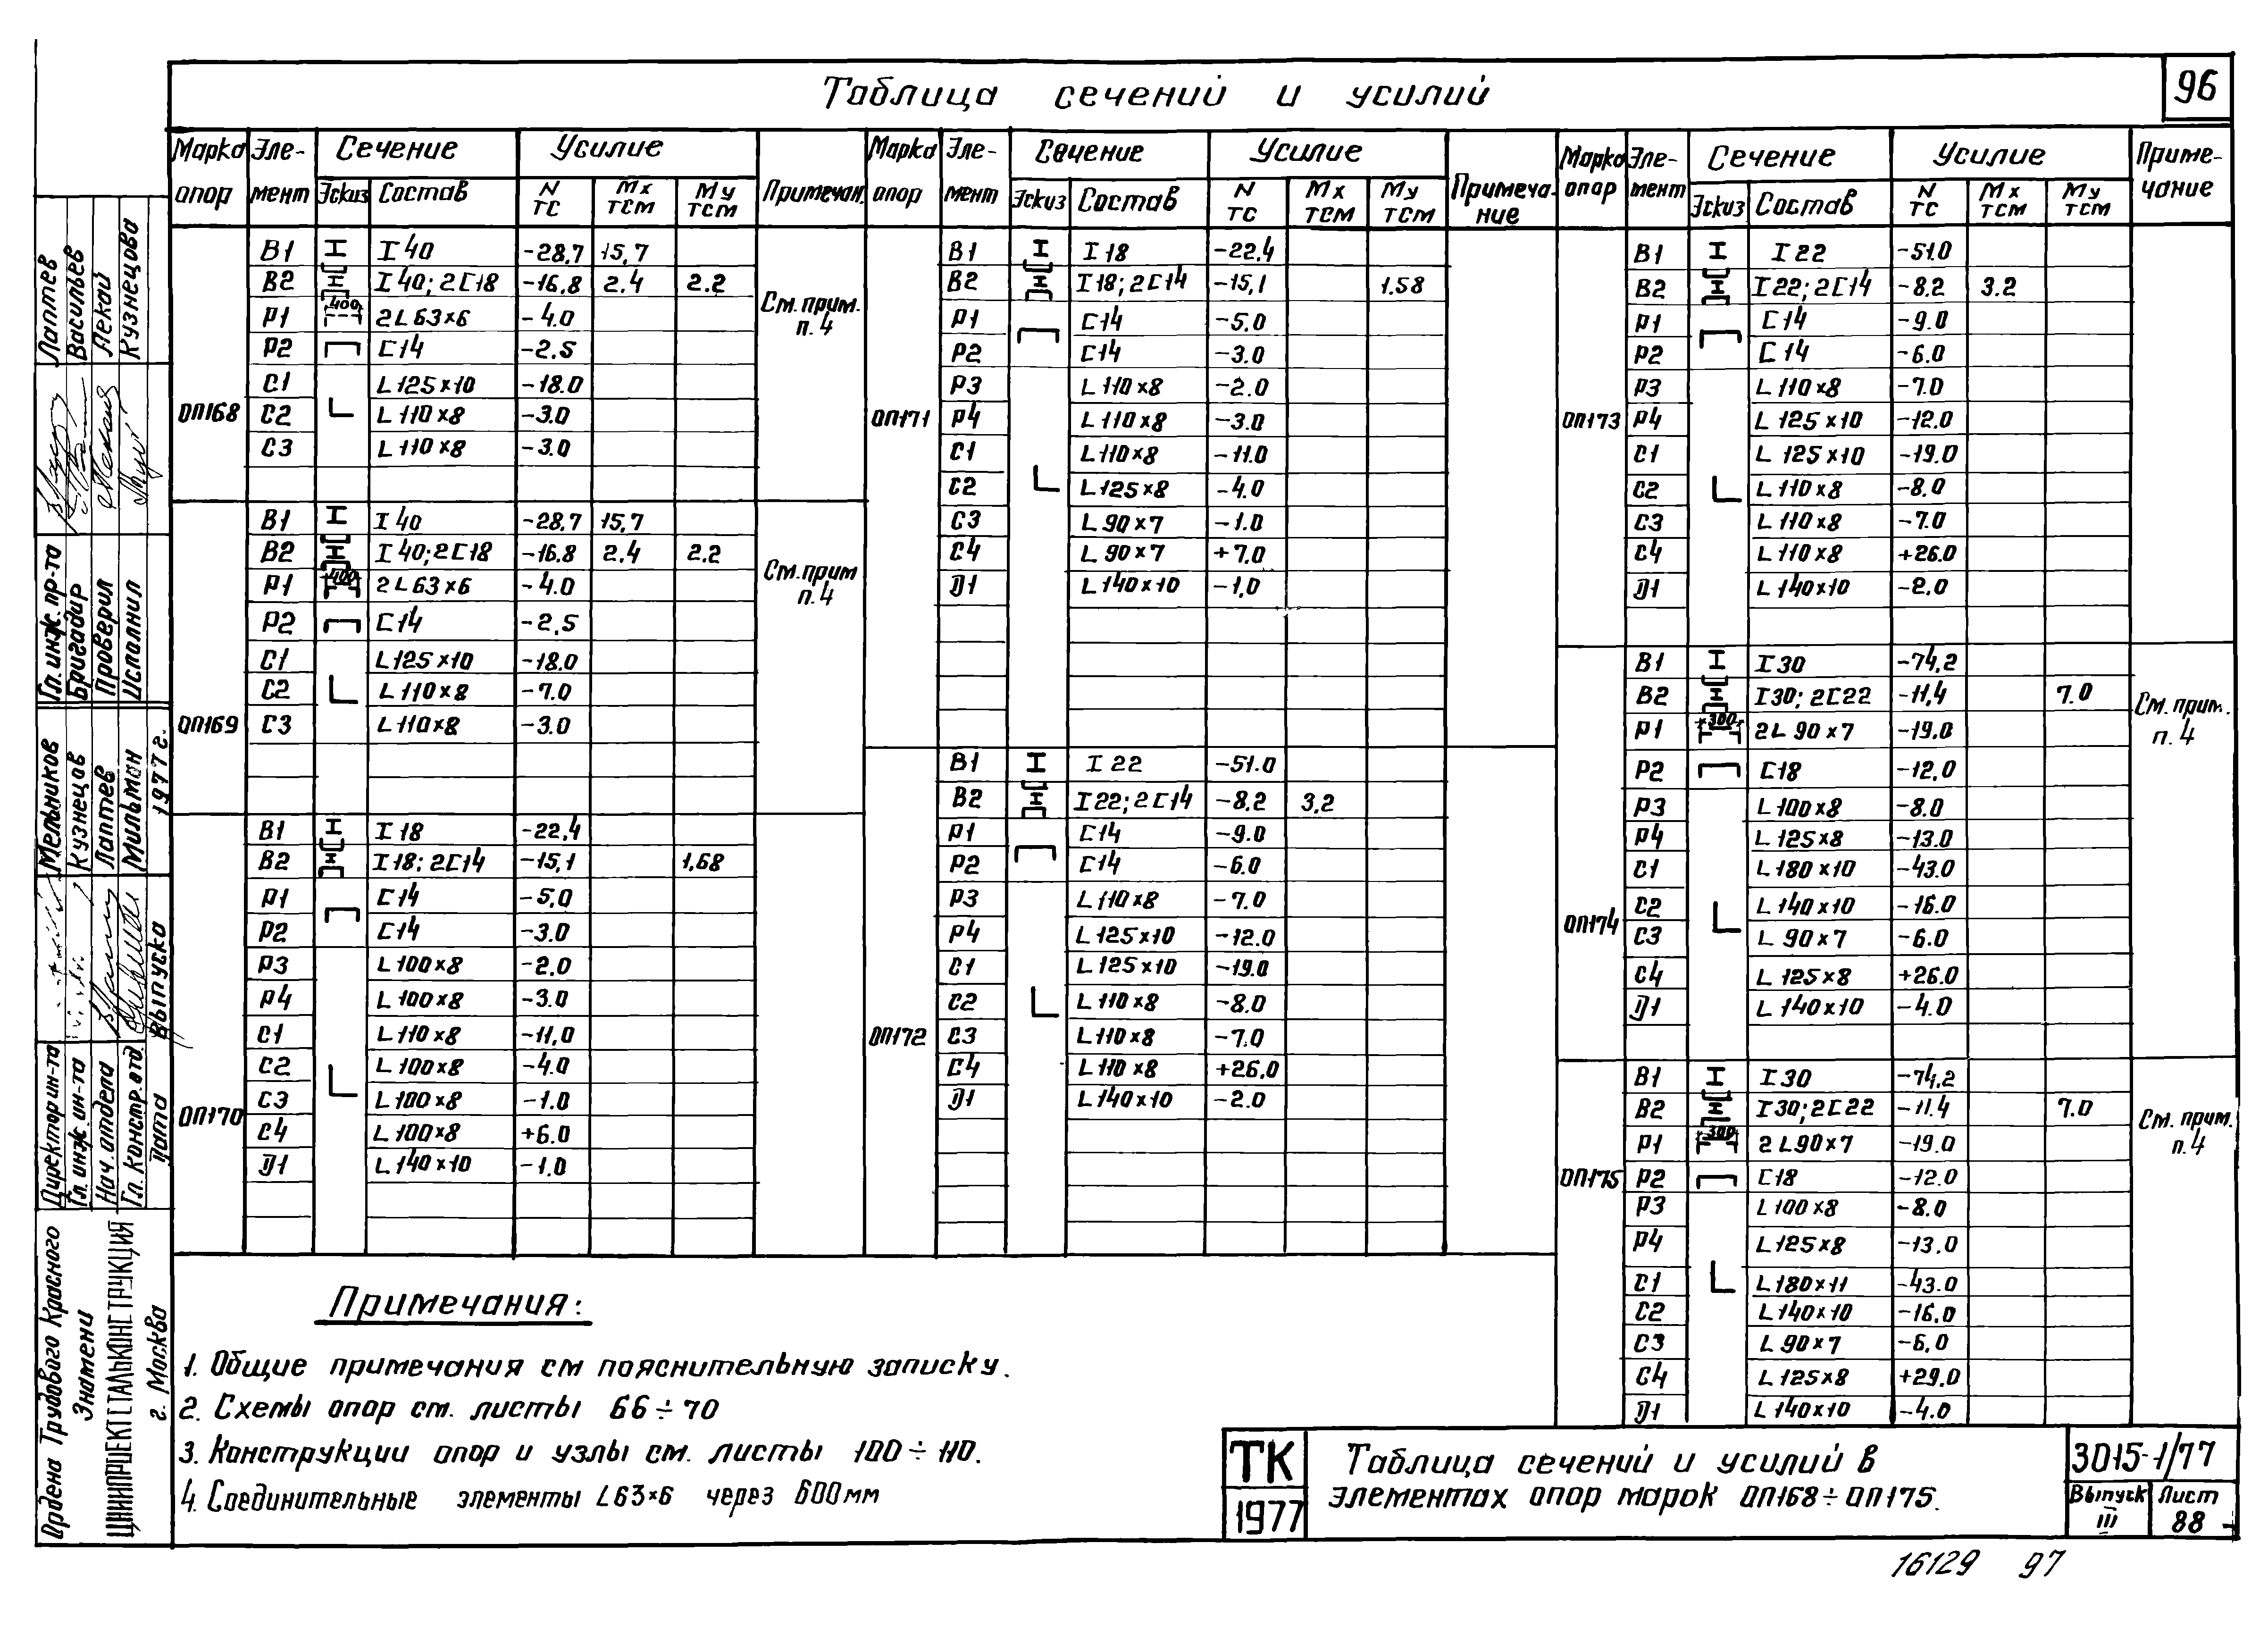 96
Таблица сечений и усилий
Марка опор Элемент Сечение Усилие Примечан.
Эскиз Состав N тс Mx тсм My тсм
ОП168
В1 I 40 -28,7 15,7
В2 I 40; 2[18 -16,8 2.4 2.2
Р1 400 2L 63×6 -4.0
Р2 [14 -2.5
С1 L 125×10 -18.0
С2 L 110×8 -3.0
С3 L 110×8 -3.0
См. прим. п. 4
ОП169
В1 I 40 -28,7 15,7
В2 I 40; 2[18 -16.8 2.4 2.2
Р1 400 2L 63×6 -4.0
Р2 [14 -2,5
С1 L 125×10 -18.0
С2 L 110×8 -7.0
С3 L 110×8 -3.0
См. прим п. 4
ОП170
В1 I 18 -22,4
В2 I 18; 2[14 -15,1 1,68
Р1 [14 -5,0
Р2 [14 -3.0
Р3 L 100×8 -2.0
Р4 L 100×8 -3.0
С1 L 110×8 -11,0
С2 L 100×8 -4.0
С3 L 100×8 -1.0
С4 L 100×8 +6.0
Д1 L 140×10 -1.0
Марка опор Элемент Сечение Усилие Примечание
Эскиз Состав N тс Mx тсм My тсм
ОП171
В1 I 18 -22,4
В2 I 18; 2[14 -15,1 1.58
Р1 [14 -5.0
Р2 [14 -3.0
Р3 L 110×8 -2.0
Р4 L 110×8 -3.0
С1 L 110×8 -11.0
С2 L 125×8 -4.0
С3 L 90×7 -1.0
С4 L 90×7 +7.0
Д1 L 140×10 -1,0
ОП172
В1 I 22 -51.0
В2 I 22; 2[14 -8.2 3,2
Р1 [14 -9.0
Р2 [14 -6.0
Р3 L 110×8 -7.0
Р4 L 125×10 -12.0
С1 L 125×10 -19.0
С2 L 110×8 -8.0
С3 L 110×8 -7.0
С4 L 110×8 +26,0
Д1 L 140×10 -2.0
Марка опор Элемент Сечение Усилие Примечание
Эскиз Состав N тс Mx тсм My тсм
ОП173
В1 I 22 -51.0
В2 I 22; 2[14 -8.2 3.2
Р1 [14 -9.0
Р2 [14 -6.0
Р3 L 110×8 -7.0
Р4 L 125×10 -12.0
С1 L 125×10 -19.0
С2 L 110×8 -8.0
С3 L 110×8 -7.0
С4 L 110×8 +26.0
Д1 L 140×10 -2.0
ОП174
В1 I 30 -74,2
В2 I 30; 2[22 -11,4 7.0
Р1 300 2L 90×7 -19.0
Р2 [18 -12,0
Р3 L 100×8 -8.0
Р4 L 125×8 -13.0
С1 L 180×10 -43.0
С2 L 140×10 -16.0
С3 L 90×7 -6.0
С4 L 125×8 +26.0
Д1 L 140×10 -4.0
См. прим. п. 4
ОП175
В1 I 30 -74,2
В2 I 30; 2[22 -11.4 7.0
Р1 300 2L 90×7 -19.0
Р2 [18 -12.0
Р3 L 100×8 -8.0
Р4 L 125×8 -13.0
С1 L 180×11 -43.0
С2 L 140×10 -16.0
С3 L 90×7 -6,0
С4 L 125×8 +29.0
Д1 L 140×10 -4.0
См. прим. п. 4
Примечания:
1. Общие примечания см пояснительную записку.
2. Схемы опор см. листы 66÷70
3. Конструкции опор и узлы см. листы 100÷110.
4. Соединительные элементы L63×6 через 600мм
ТК
1977
Таблица сечений и усилий в
элементах опор марок ОП168÷ОП175.
3015-1/77
Выпуск III
Лист 88
16129 97
Ордена Трудового Красного
Знамени
ЦНИИПРОЕКТСТАЛЬКОНСТРУКЦИЯ
г. Москва
Директор ин-та Мельников
Гл. инж. ин-та Кузнецов
Нач. отдела Лаптев
Гл. констр. отд. Мильман
Дата выпуска 1977 г.
Гл. инж. пр-та Лаптев
Бригадир Васильев
Проверил Лекай
Исполнил Кузнецова